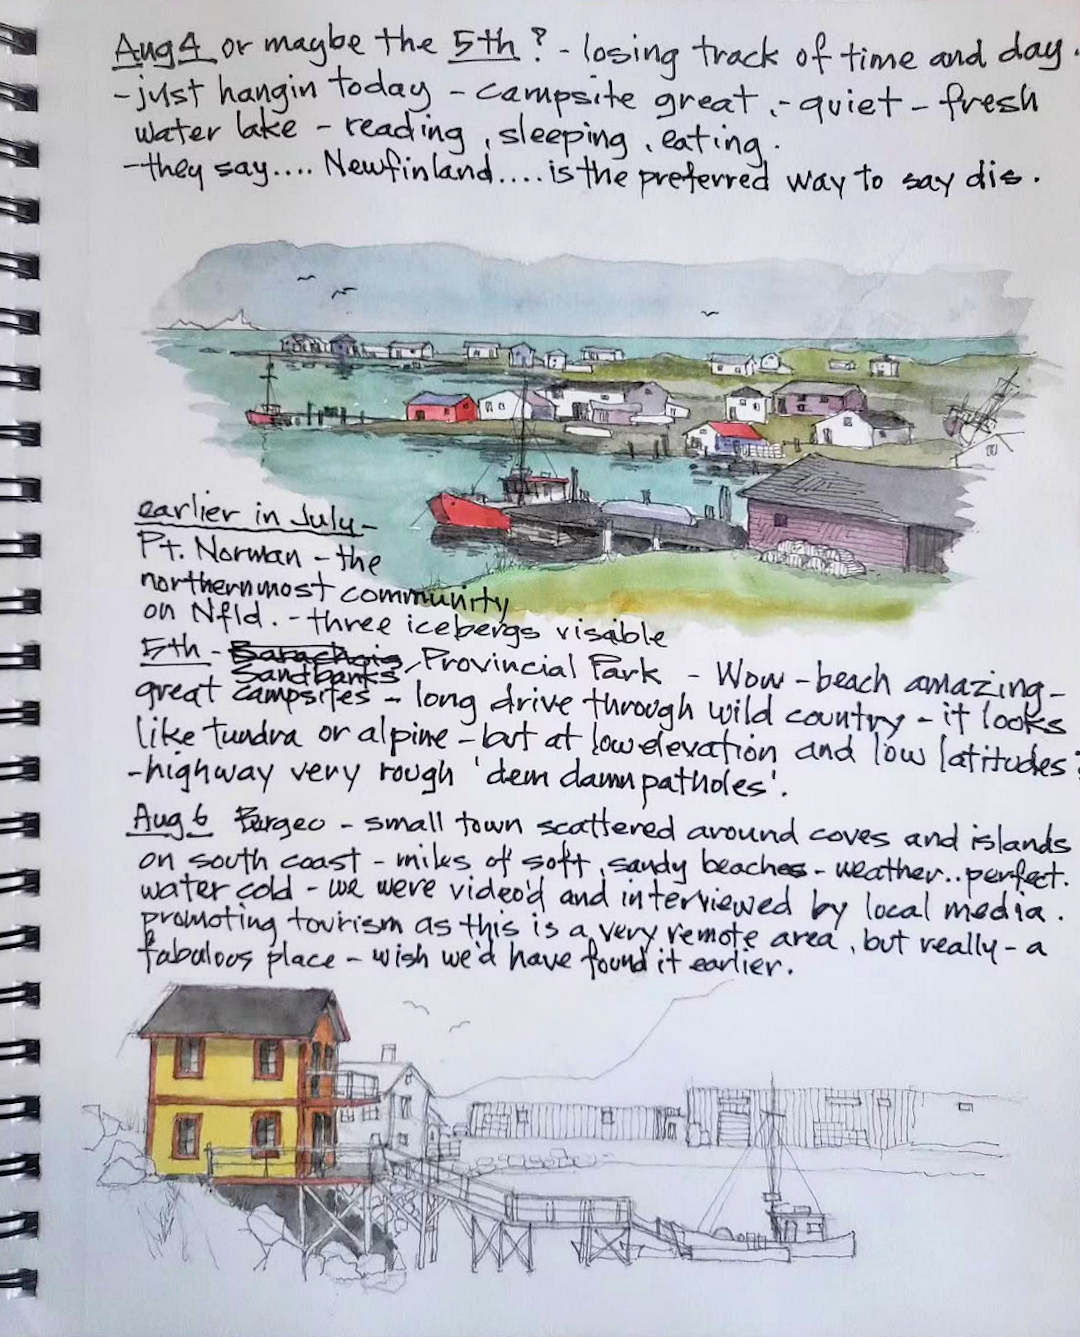 Aug 4 or maybe the 5th? - losing track of time and day.
- just hangin today - campsite great. - quiet - fresh
water lake - reading, sleeping, eating.
- they say.... Newfinland.... is the preferred way to say dis.
earlier in July -
Pt. Norman - the
northernmost community
on Nfld. - three icebergs visable
5th - Barachois Provincial Park - Wow - beach amazing -
Sandbanks
great campsites - long drive through wild country - it looks
like tundra or alpine - but at low elevation and low latitudes?
- highway very rough 'dem damn patholes'.
Aug 6 Burgeo - small town scattered around coves and islands
on south coast - miles of soft, sandy beaches - weather.. perfect.
water cold - we were video'd and interviewed by local media.
promoting tourism as this is a very remote area, but really - a
fabulous place - wish we'd have found it earlier.